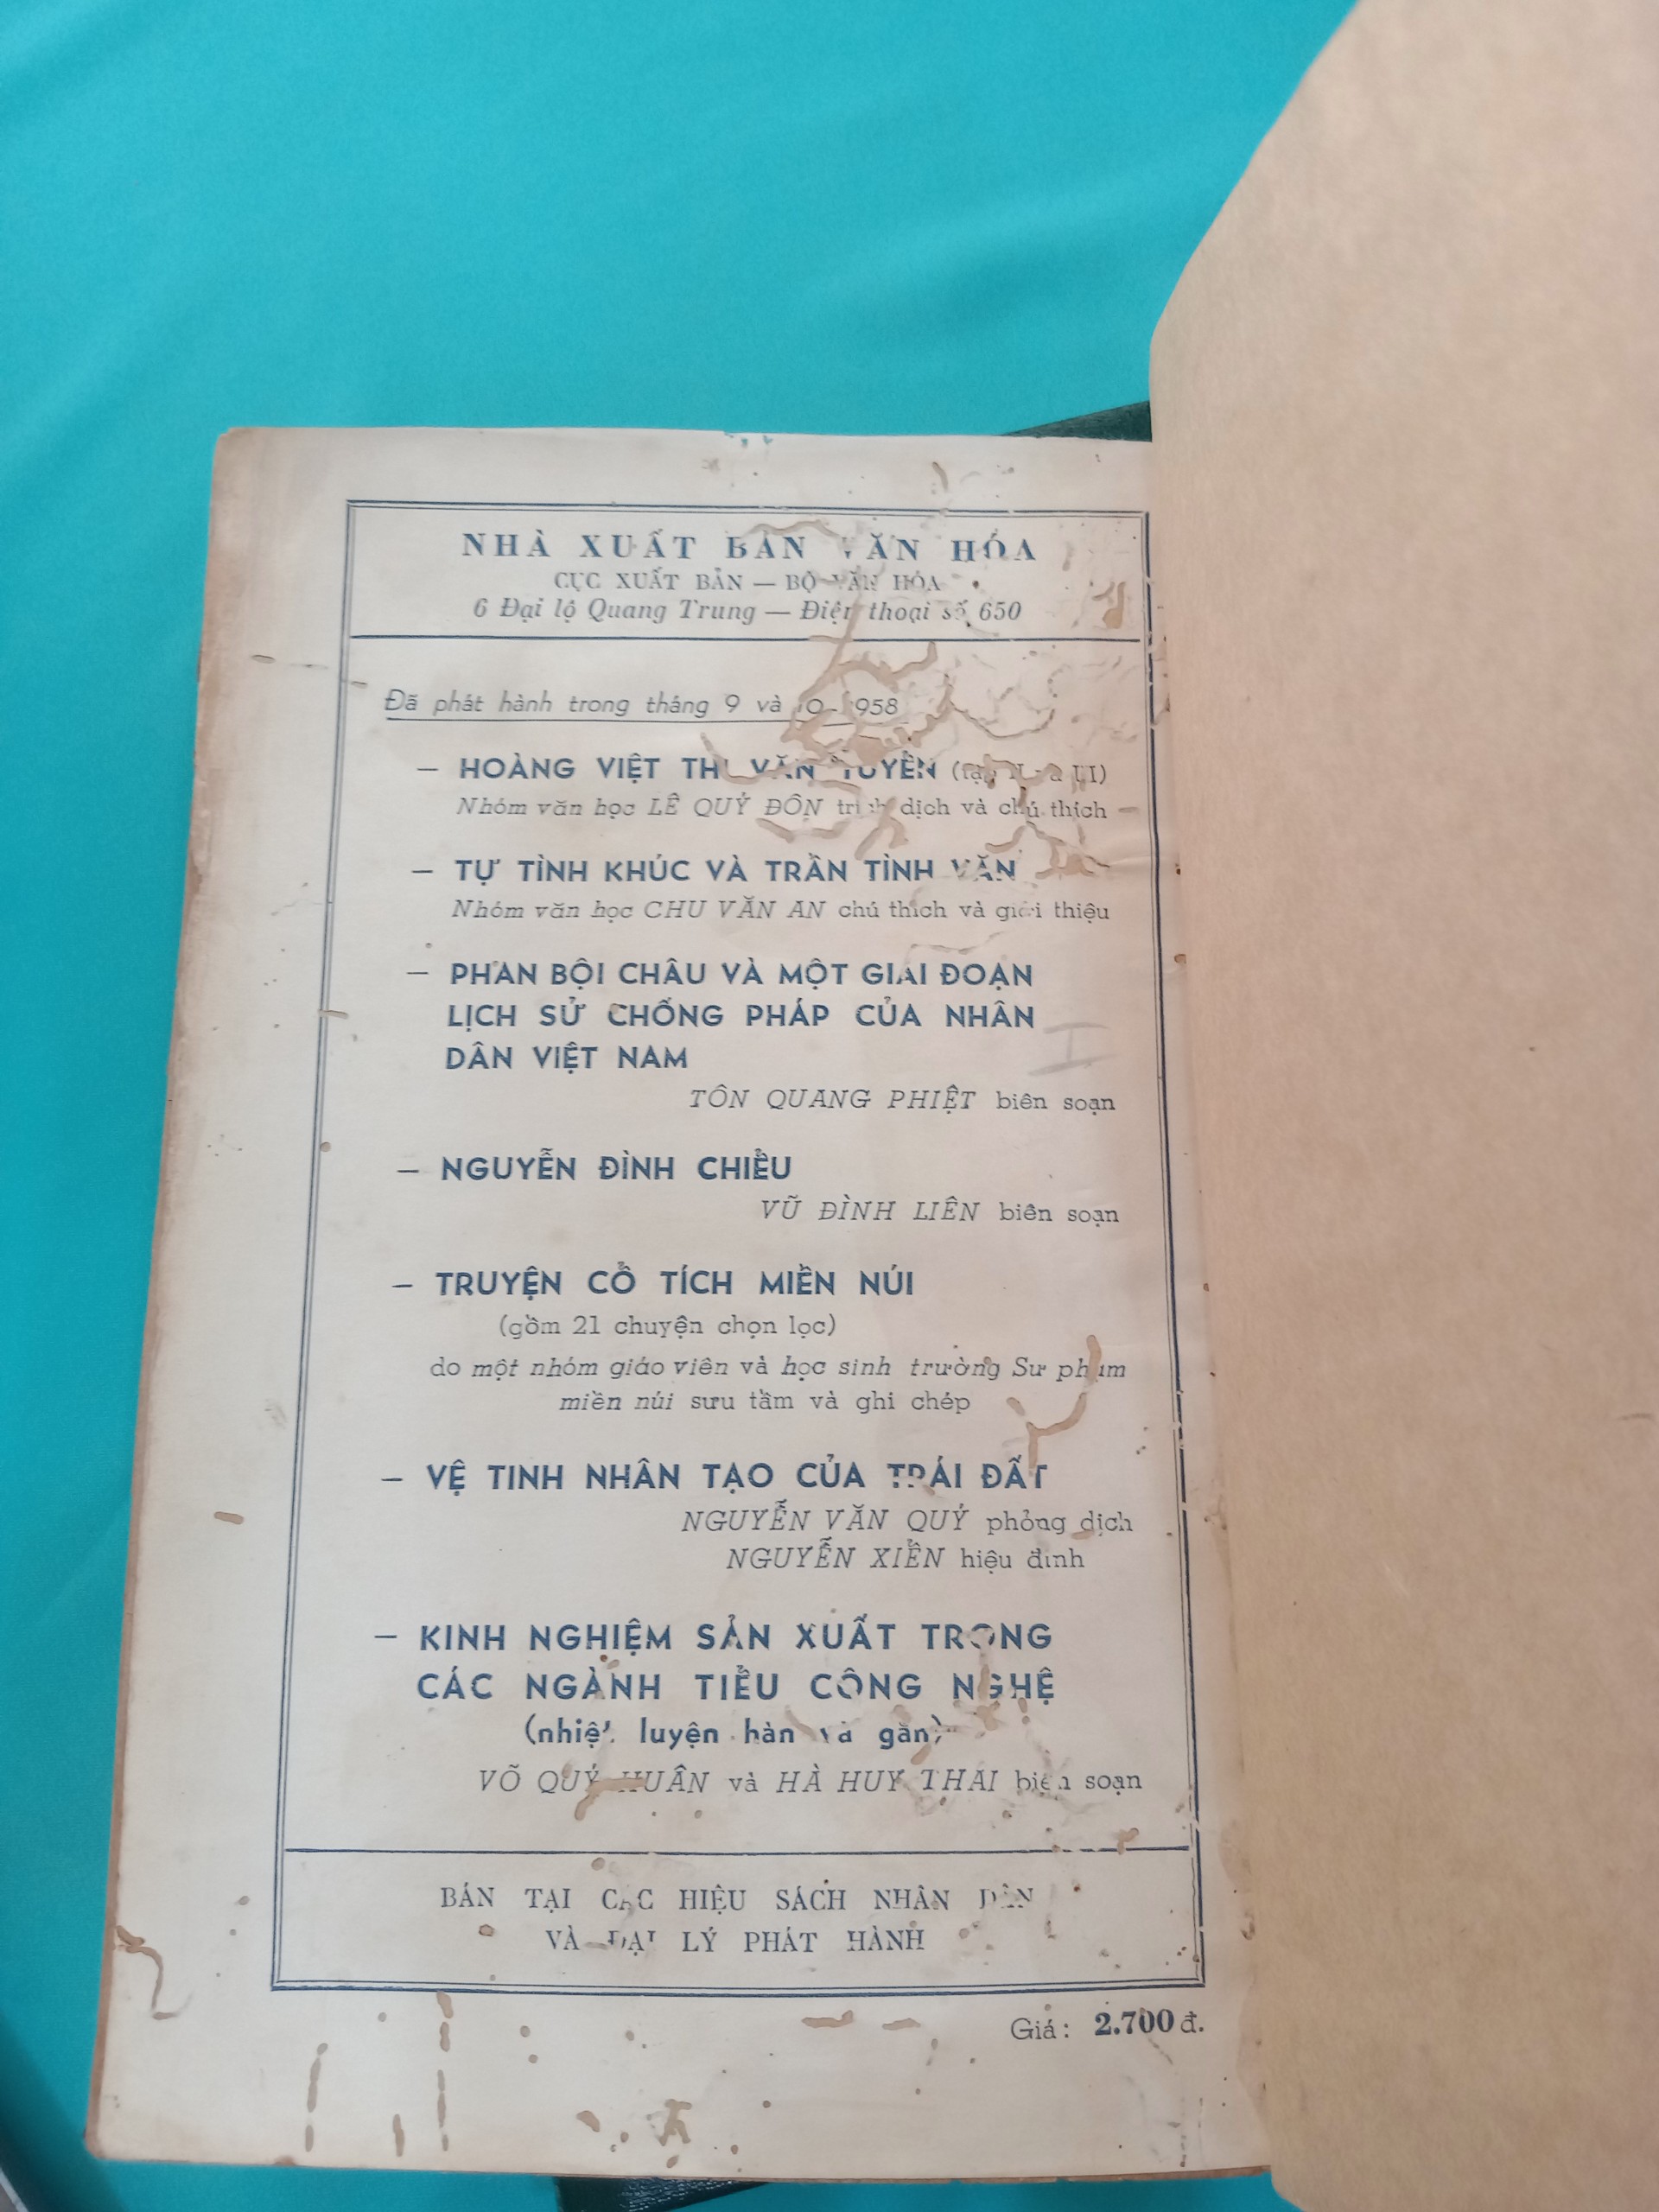 NHÀ XUẤT BẢN VĂN HÓA
CỤC XUẤT BẢN — BỘ VĂN HÓA
6 Đại lộ Quang Trung — Điện thoại số 650
Đã phát hành trong tháng 9 và 10-1958
— HOÀNG VIỆT THI VĂN TUYỂN (tập II và III)
Nhóm văn học LÊ QUÝ ĐÔN trích dịch và chú thích
— TỰ TÌNH KHÚC VÀ TRẦN TÌNH VĂN
Nhóm văn học CHU VĂN AN chú thích và giới thiệu
— PHAN BỘI CHÂU VÀ MỘT GIAI ĐOẠN
LỊCH SỬ CHỐNG PHÁP CỦA NHÂN
DÂN VIỆT NAM
TÔN QUANG PHIỆT biên soạn
— NGUYỄN ĐÌNH CHIỂU
VŨ ĐÌNH LIÊN biên soạn
— TRUYỆN CỔ TÍCH MIỀN NÚI
(gồm 21 chuyện chọn lọc)
do một nhóm giáo viên và học sinh trường Sư phạm
miền núi sưu tầm và ghi chép
— VỆ TINH NHÂN TẠO CỦA TRÁI ĐẤT
NGUYỄN VĂN QUÝ phỏng dịch
NGUYỄN XIỂN hiệu đính
— KINH NGHIỆM SẢN XUẤT TRONG
CÁC NGÀNH TIỂU CÔNG NGHỆ
(nhiệt luyện hàn và gắn)
VÕ QUÝ HUÂN và HÀ HUY THÁI biên soạn
BÁN TẠI CÁC HIỆU SÁCH NHÂN DÂN
VÀ ĐẠI LÝ PHÁT HÀNH
Giá: 2.700 đ.